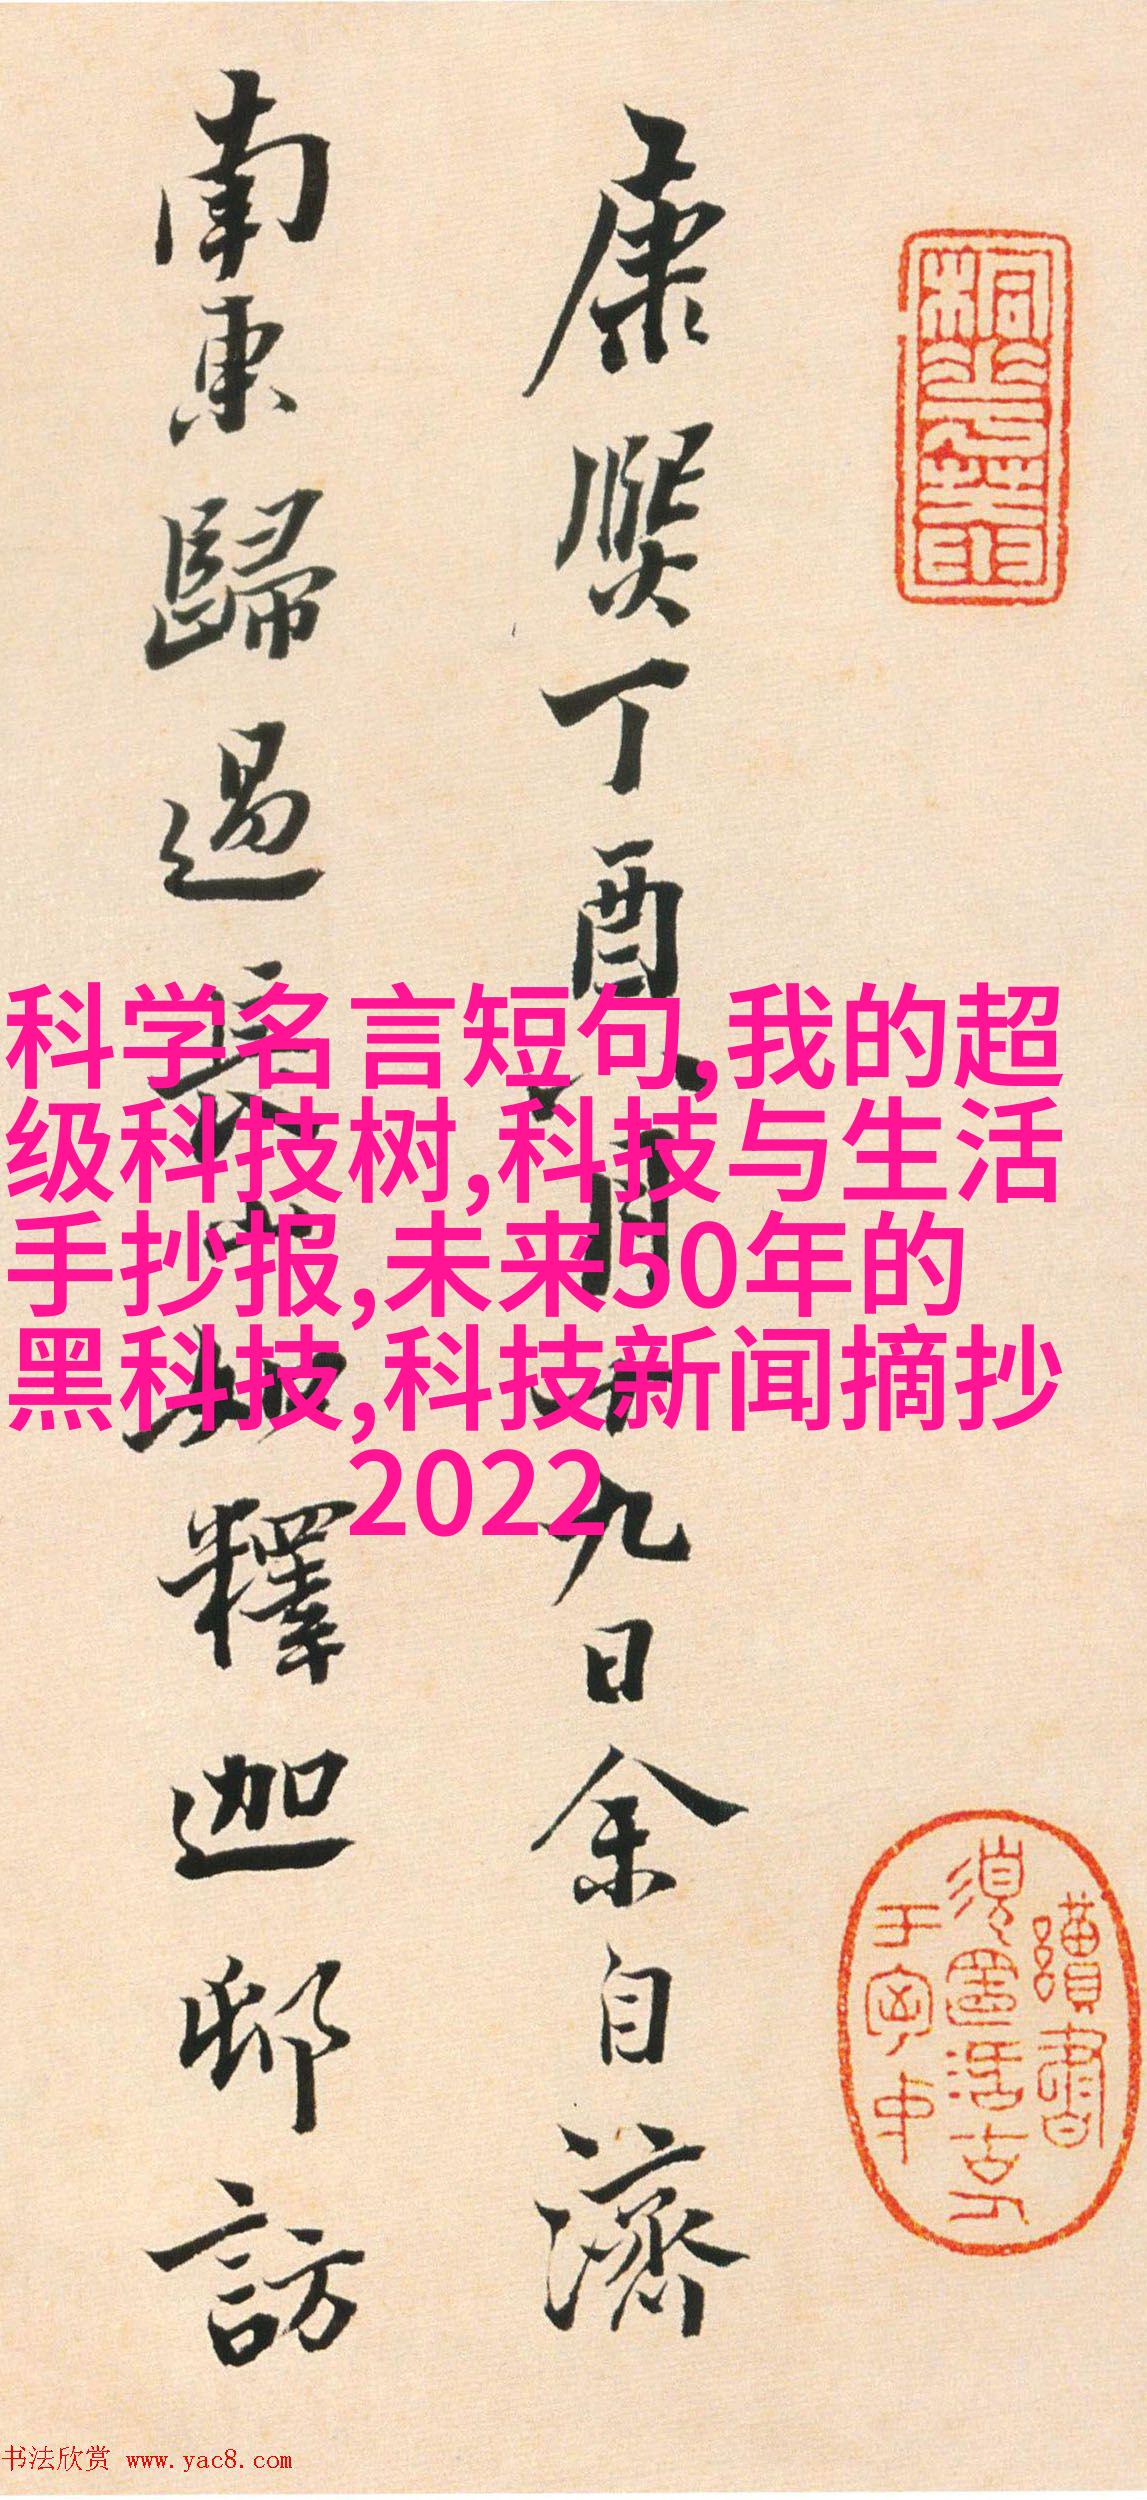 康熙丁酉八月廿九日余自濟
南東歸過長山知釋迦邨訪
科学名言短句,我的超
级科技树,科技与生活
手抄报,未来50年的
黑科技,科技新闻摘抄
2022
书法欣赏 www.yac8.com